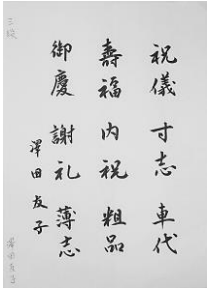 祝儀 寸志 車代
壽福 内祝 粗品
御慶 謝礼 薄志
澤田友子